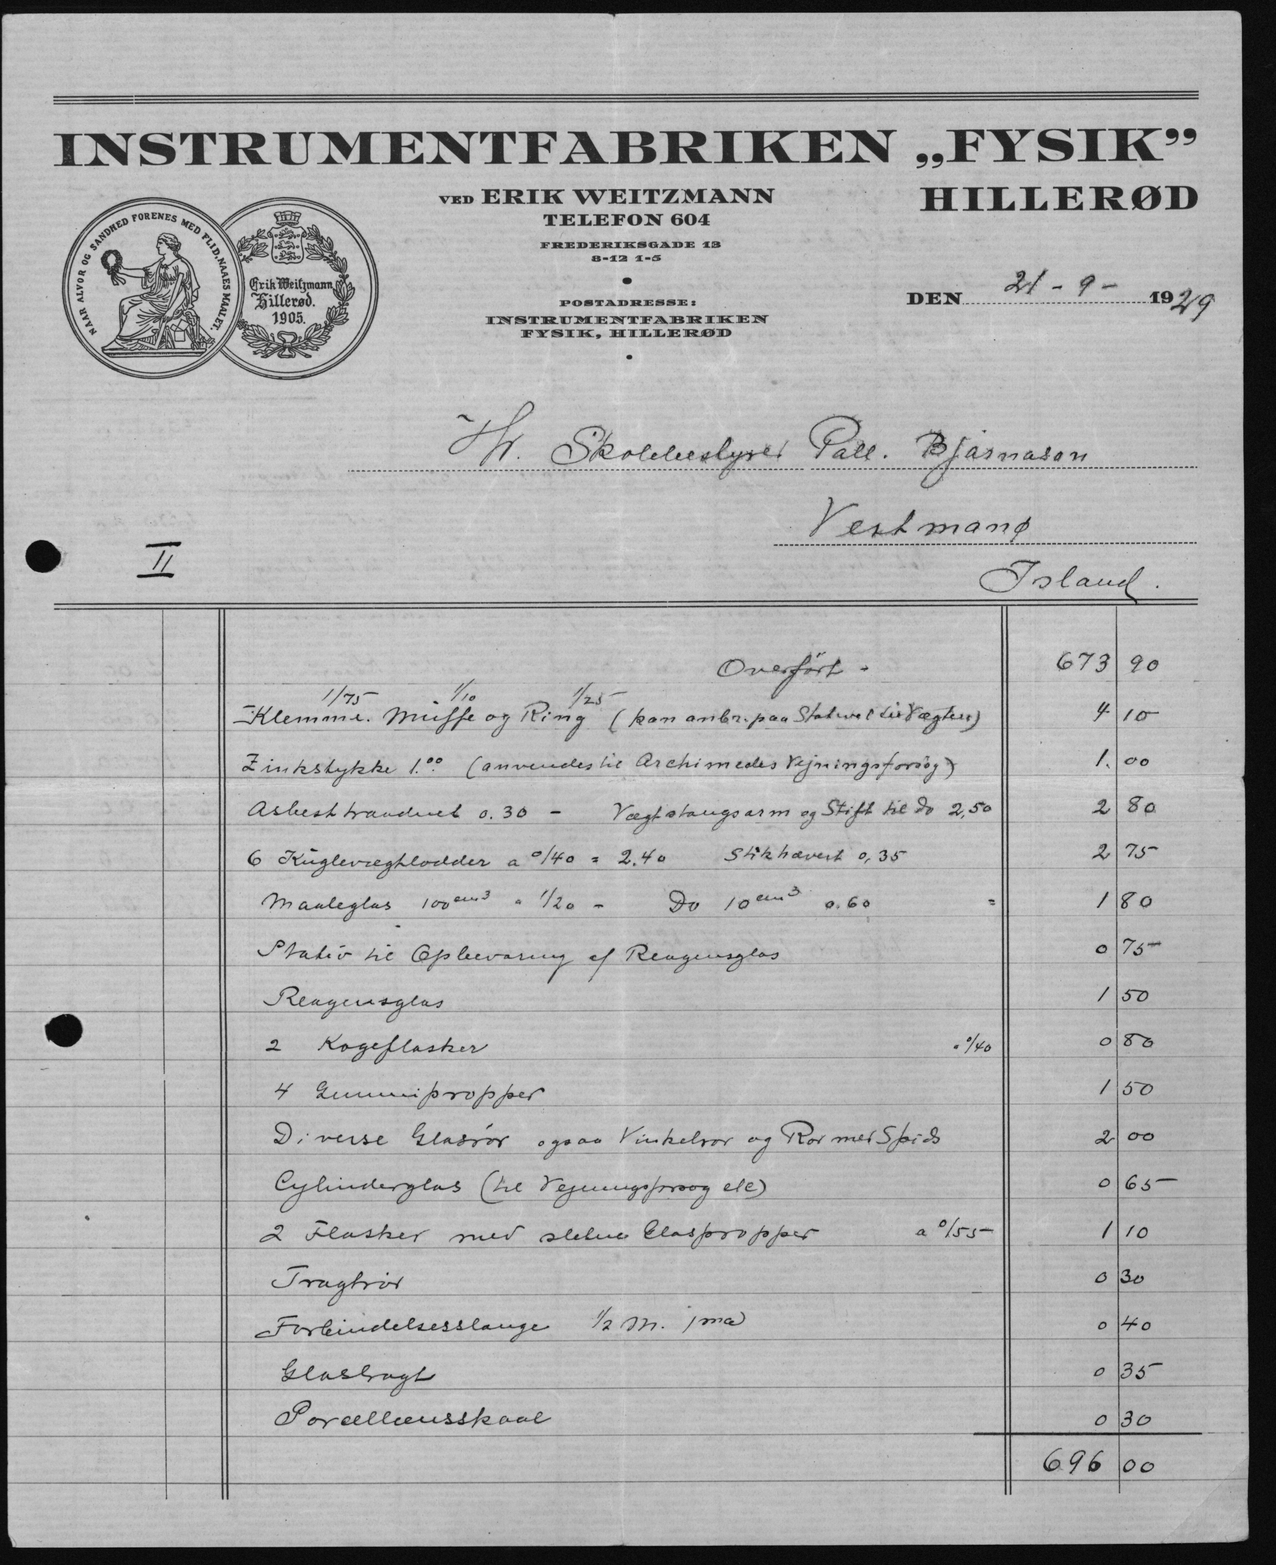 INSTRUMENTFABRIKEN „FYSIK”
VED ERIK WEITZMANN
HILLERØD
TELEFON 604
FREDERIKSGADE 13
8-12 1-5
POSTADRESSE:
INSTRUMENTFABRIKEN
FYSIK, HILLERØD
NAAR ALVOR OG SANDHED FORENES MED FLID, NAAES MAALET.
Erik Weitzmann
Hillerød.
1905.
DEN 21-9- 1929
Hr. Skolebestyrer Pall. Bjarnason
Vestmanø
Island.
II
Overført - 673 90
1/75 1/10 1/25
Klemme. Muffe og Ring (kan anbr. paa Stativet til Vægten) 4 10
Zinkstykke 1.00 (anvendes til Archimedes Vejningsforsøg) 1. 00
Asbesttraadnet 0.30 - Vægtstangsarm og Stift til Do 2,50 2 80
6 Kuglevægtlodder a 0/40 = 2.40 Stikhævert 0,35 2 75
Maaleglas 100 cm3 a 1/20 - Do 10 cm3 0.60 = 1 80
Stativ til Opbevaring af Reagensglas 0 75
Reagensglas 1 50
2 Kogeflasker a 0/40 0 80
4 Gummipropper 1 50
Diverse Glasrör ogsaa Vinkelrör og Rör med Spids 2 00
Cylinderglas (til Vejningsforsøg etc) 0 65
2 Flasker med slebne Glaspropper a 0/55 1 10
Tragtrör 0 30
Forbindelsesslange 1/2 M. 1ma 0 40
Glastragt 0 35
Porcellænsskaal 0 30
696 00